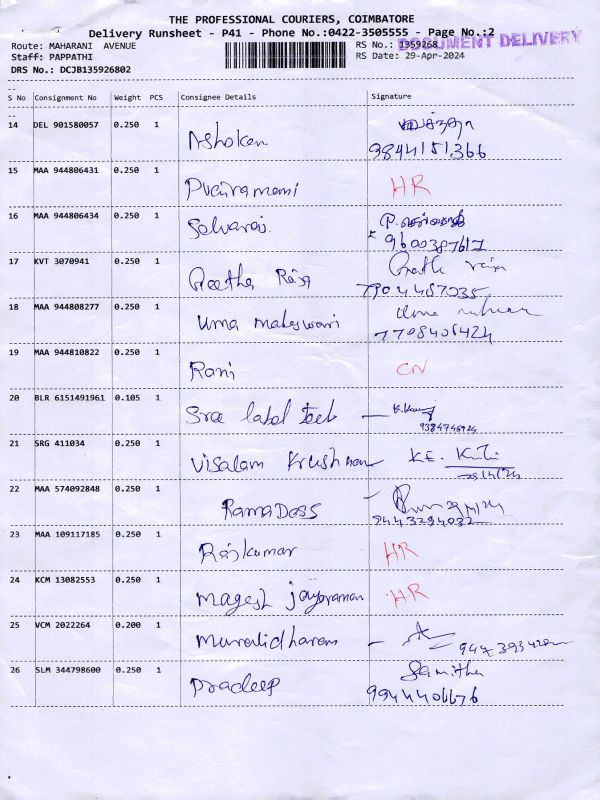 THE PROFESSIONAL COURIERS, COIMBATORE
Delivery Runsheet - P41 - Phone No.:0422-3505555 - Page No.:2
Route: MAHARANI AVENUE
RS No.: 1359268
DOCUMENT DELIVERY
Staff: PAPPATHI
RS Date: 29-Apr-2024
DRS No.: DCJB135926802
S No Consignment No Weight PCS Consignee Details Signature
14 DEL 901580057 0.250 1 Ashokan
9844151366
15 MAA 944806431 0.250 1 HR
16 MAA 944806434 0.250 1 Selvaraj
9600387617
17 KVT 3070941 0.250 1 Geetha Raja
7904487035
18 MAA 944808277 0.250 1 Uma maheswari
7708406424
19 MAA 944810822 0.250 1 Rani CN
20 BLR 6151491961 0.105 1 Sree label tech
21 SRG 411034 0.250 1 Visalam Krushnan K.E.
22 MAA 574092848 0.250 1 RamaDoss
9443294032
23 MAA 109117185 0.250 1 Rajkumar HR
24 KCM 13082553 0.250 1 Magesh jayaraman HR
25 VCM 2022264 0.200 1 Muralidharan
26 SLM 344798600 0.250 1 Pradeep
9944406676